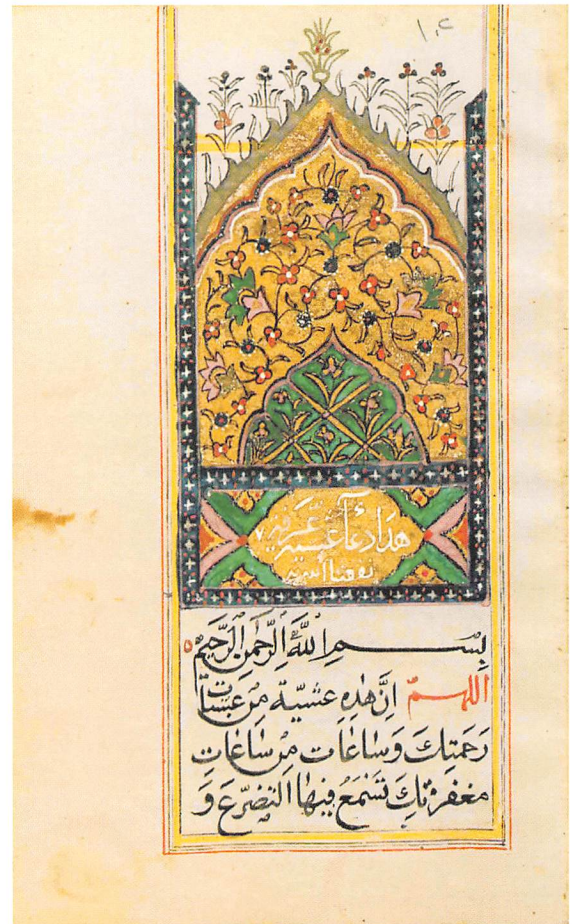 ١٠٤
هذا دعاء عشية عرفة
بِسْمِ اللَّهِ الرَّحْمَنِ الرَّحِيمِ
اللهمّ اِنَّ هٰذِهِ عشيّة مِنْ عَشيات
رَحمَتِكَ وَسٰاعٰات مِنْ سٰاعٰاتِ
مغفرتِكَ تَسْمَعُ فيهٰا التضرّعَ وَ